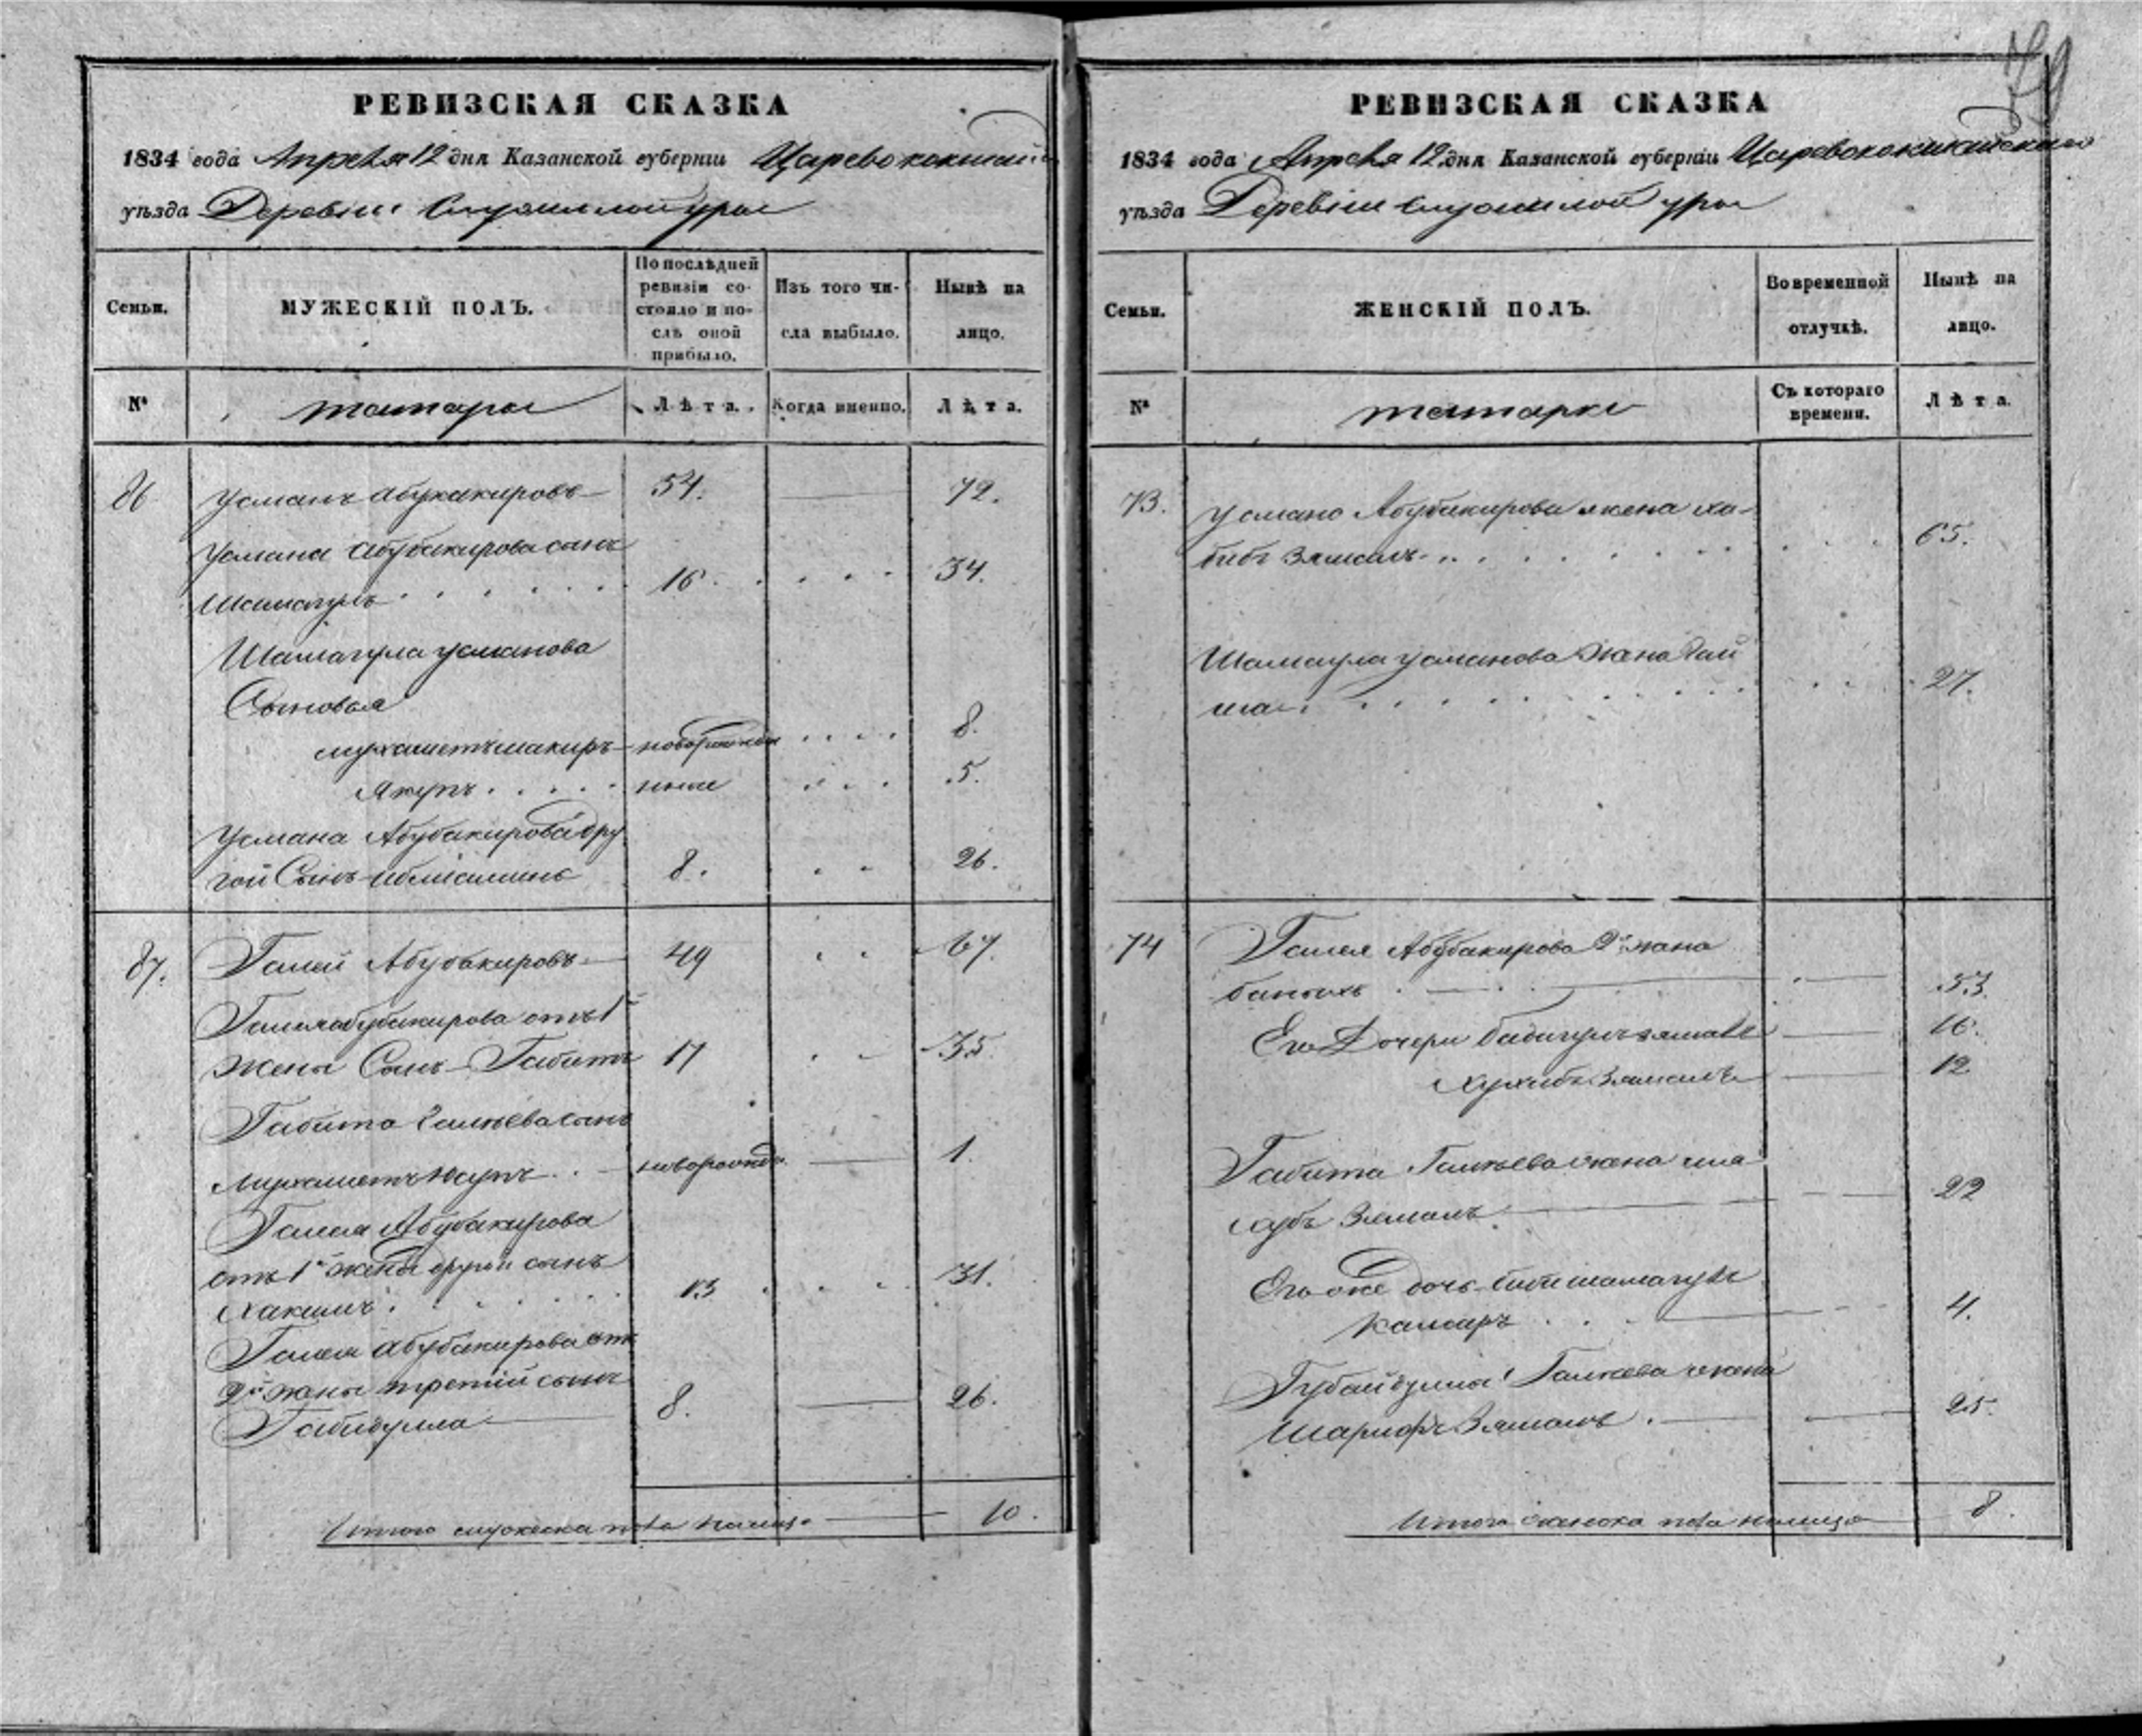 79
РЕВИЗСКАЯ СКАЗКА
1834 года Апреля 12 дня Казанской губернiи Царевококшай
уѣзда Деревни Служилой уры
Семьи.
МУЖЕСКІЙ ПОЛЪ.
По послѣдней
ревизіи со-
стояло и по-
слѣ оной
прибыло.
Изъ того чи-
сла выбыло.
Нынѣ на
лицо.
№
татары
Лѣта.
Когда именно.
Лѣта.
86 Усманъ абукакировъ 54. 72.
Усмана абубакирова сынъ
Шамагулъ 16. 34.
Шамагула усманова
Сыновья
мухаметшакиръ новорожден 8.
Якупъ ные 5.
Усмана Абубакирова дру
гой Сынъ 8. 26.
87. Галей Абубакировъ 49 67.
Галея абубакирова отъ 1й
жены Сынъ Габитъ 17 35.
Габита Галеева сынъ
Мухаметъ Юсупъ новорожде. 1.
Галея Абубакирова
отъ 1й жены другой сынъ
Хакимъ 13 31.
Галея абубакирова отъ
2й жены третий сынъ
8. 26.
Итого мужеска пола налицо 10.
РЕВИЗСКАЯ СКАЗКА
1834 года Апреля 12 дня Казанской губернiи Царевококшайскаго
уѣзда Деревни Служилой уры
Семьи.
ЖЕНСКІЙ ПОЛЪ.
Во временной
отлучкѣ.
Нынѣ на
лицо.
№
татарки
Съ котораго
времени.
Лѣта.
73. Усмана Абубакирова жена ха-
бибъ Зямалъ 65.
Шамагула усманова жена Гай
ша 27.
74 Галея Абубакирова 2я жена
53.
Его Дочери Бадигулъзямалъ 16.
Хухибъ Зямалъ 12
Габита Галеева жена ма
хубъ Зямалъ 22
Его же дочь бибишамагул
камаръ 4.
Губайдулла Галеева жена
Шарифъ Зямалъ 25.
Итого женска пола налицо 8.